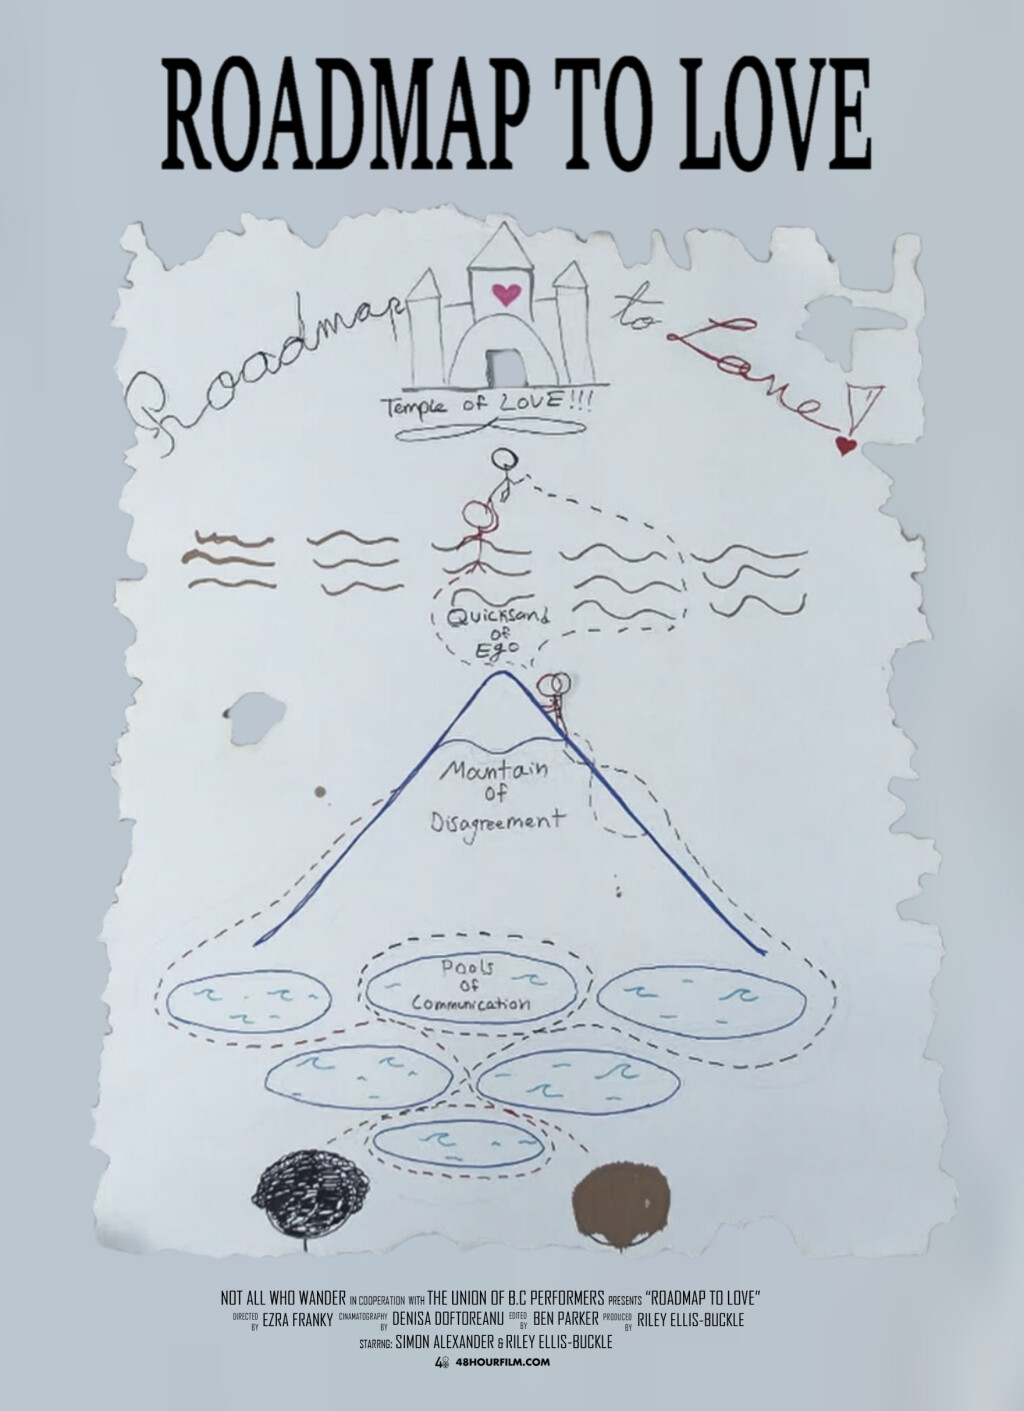 ROADMAP TO LOVE
Roadmap to Love!
Temple of LOVE!!!
Quicksand
of
Ego
Mountain
of
Disagreement
Pools
of
Communication
NOT ALL WHO WANDER IN COOPERATION WITH THE UNION OF B.C PERFORMERS PRESENTS “ROADMAP TO LOVE”
DIRECTED BY EZRA FRANKY CINAMATOGRAPHY BY DENISA DOFTOREANU EDITED BY BEN PARKER PRODUCED BY RILEY ELLIS-BUCKLE
STARRNG: SIMON ALEXANDER & RILEY ELLIS-BUCKLE
48 48HOURFILM.COM